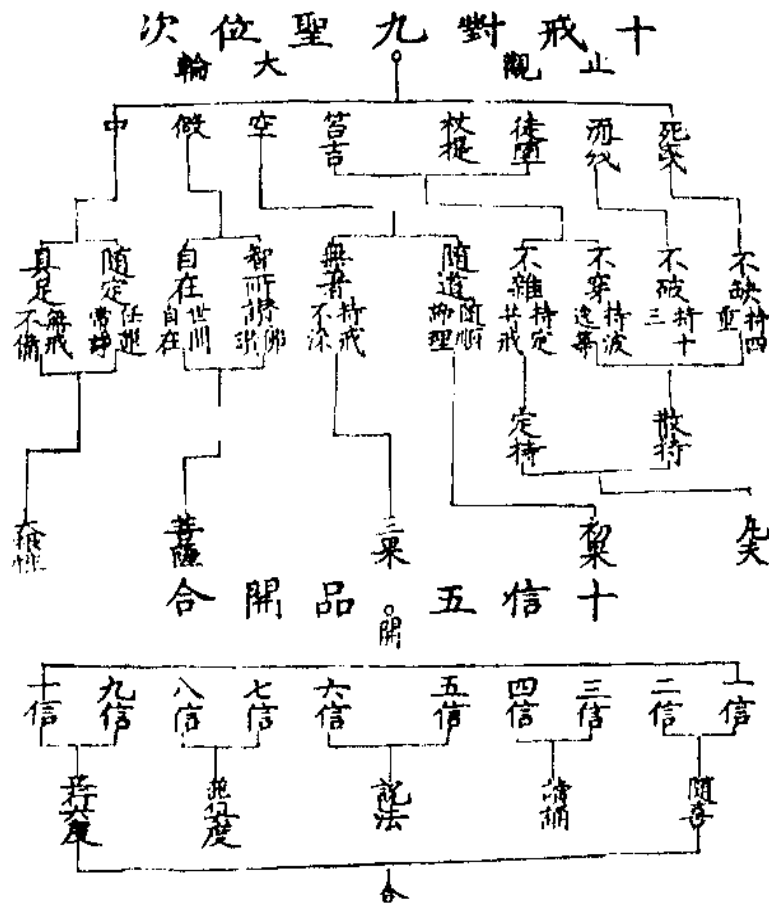 十戒對九聖位次
止觀
大輪
死
流
徒
杖
笞
空
假
中
不缺 持四重
不破 持十三
不穿 持波逸
不雜 持定共戒
隨道 隨順諦理
無著 持戒不染
智所
自在 世間自在
隨定 任運常靜
具足 無戒不備
散持
定持
凡夫
初果
三果
菩薩
十信五品開合
開
一信
二信
三信
四信
五信
六信
七信
八信
九信
十信
隨喜
說法
六度
合